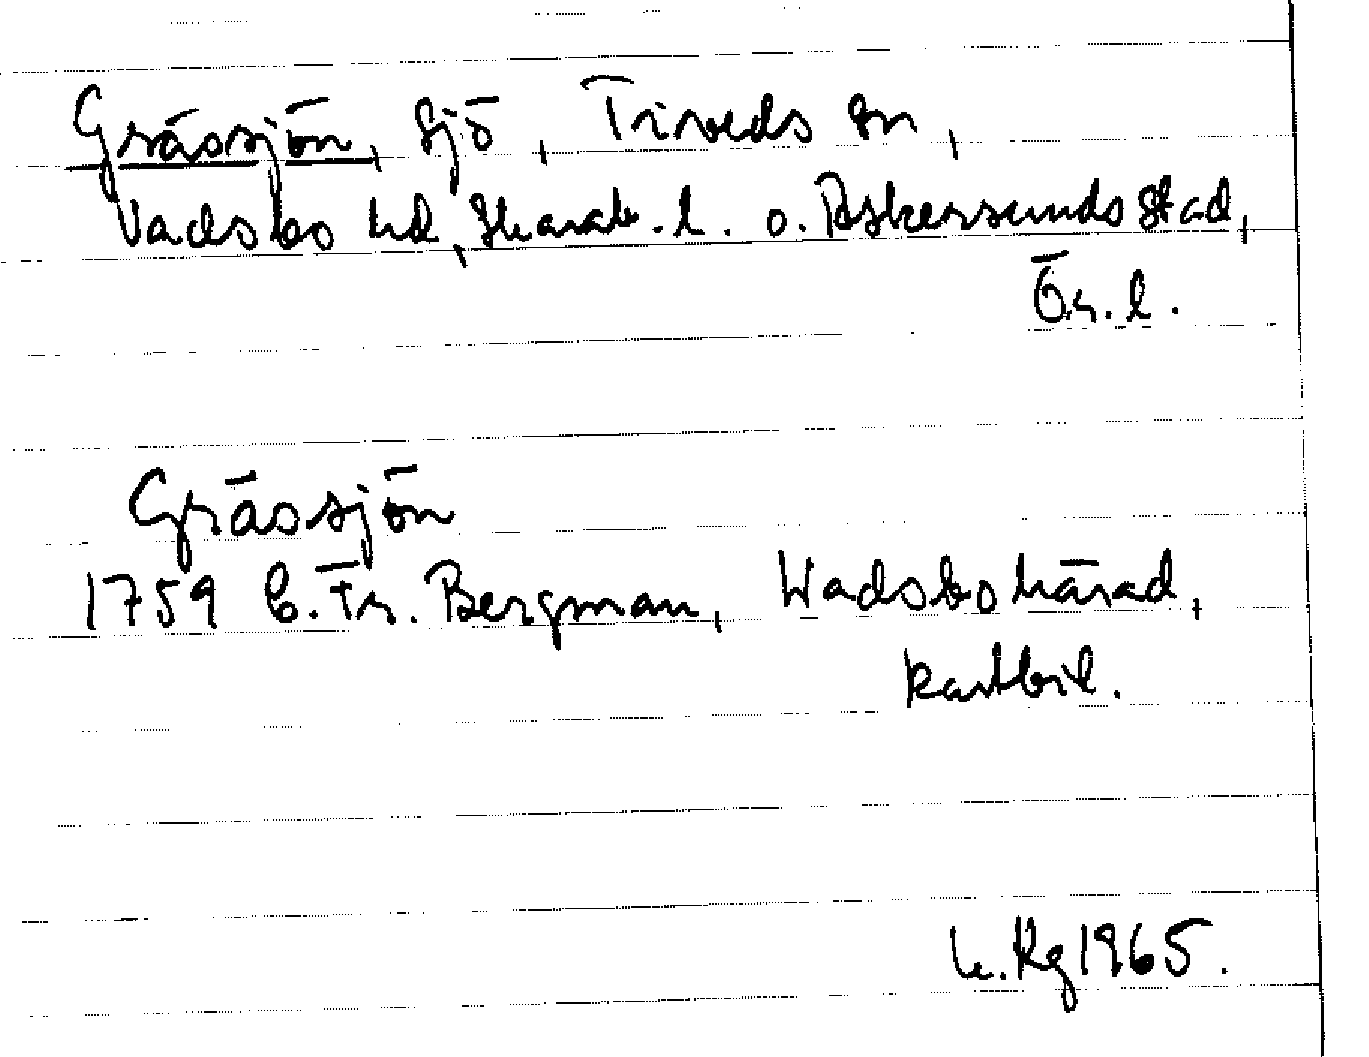 Grässjön, sjö, Tiveds sn,
Vadsbo hd, Skarab. l. o. Askersunds stad,
Ör. l.
Grässjön
1759 C. Fr. Bergman, Wadsbo härad,
kartbil.
Rg 1965.